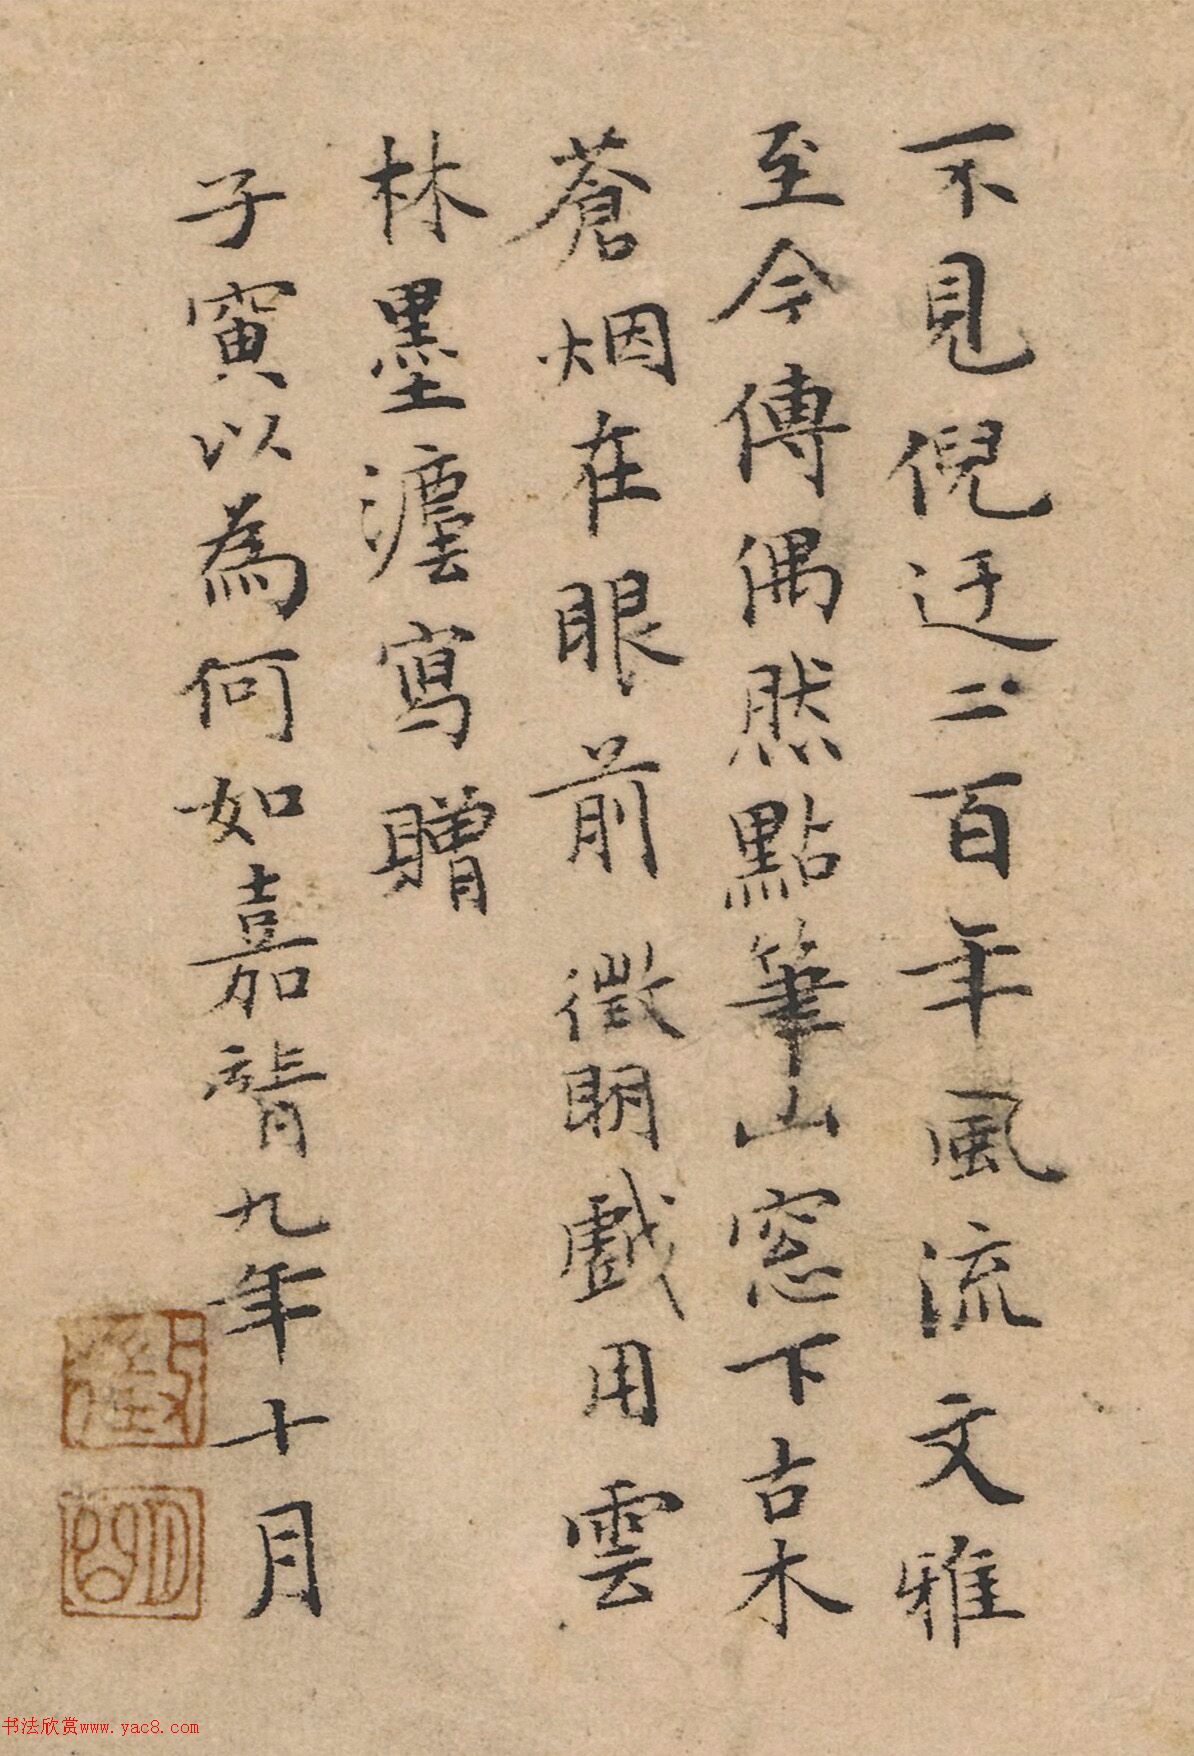 不見倪迂二百年風流文雅
至今傳偶然點筆山窓下古木
蒼烟在眼前 徵明戲用雲
林墨瀋寫贈
子寅以為何如嘉靖九年十月
書法欣赏www.yac8.com